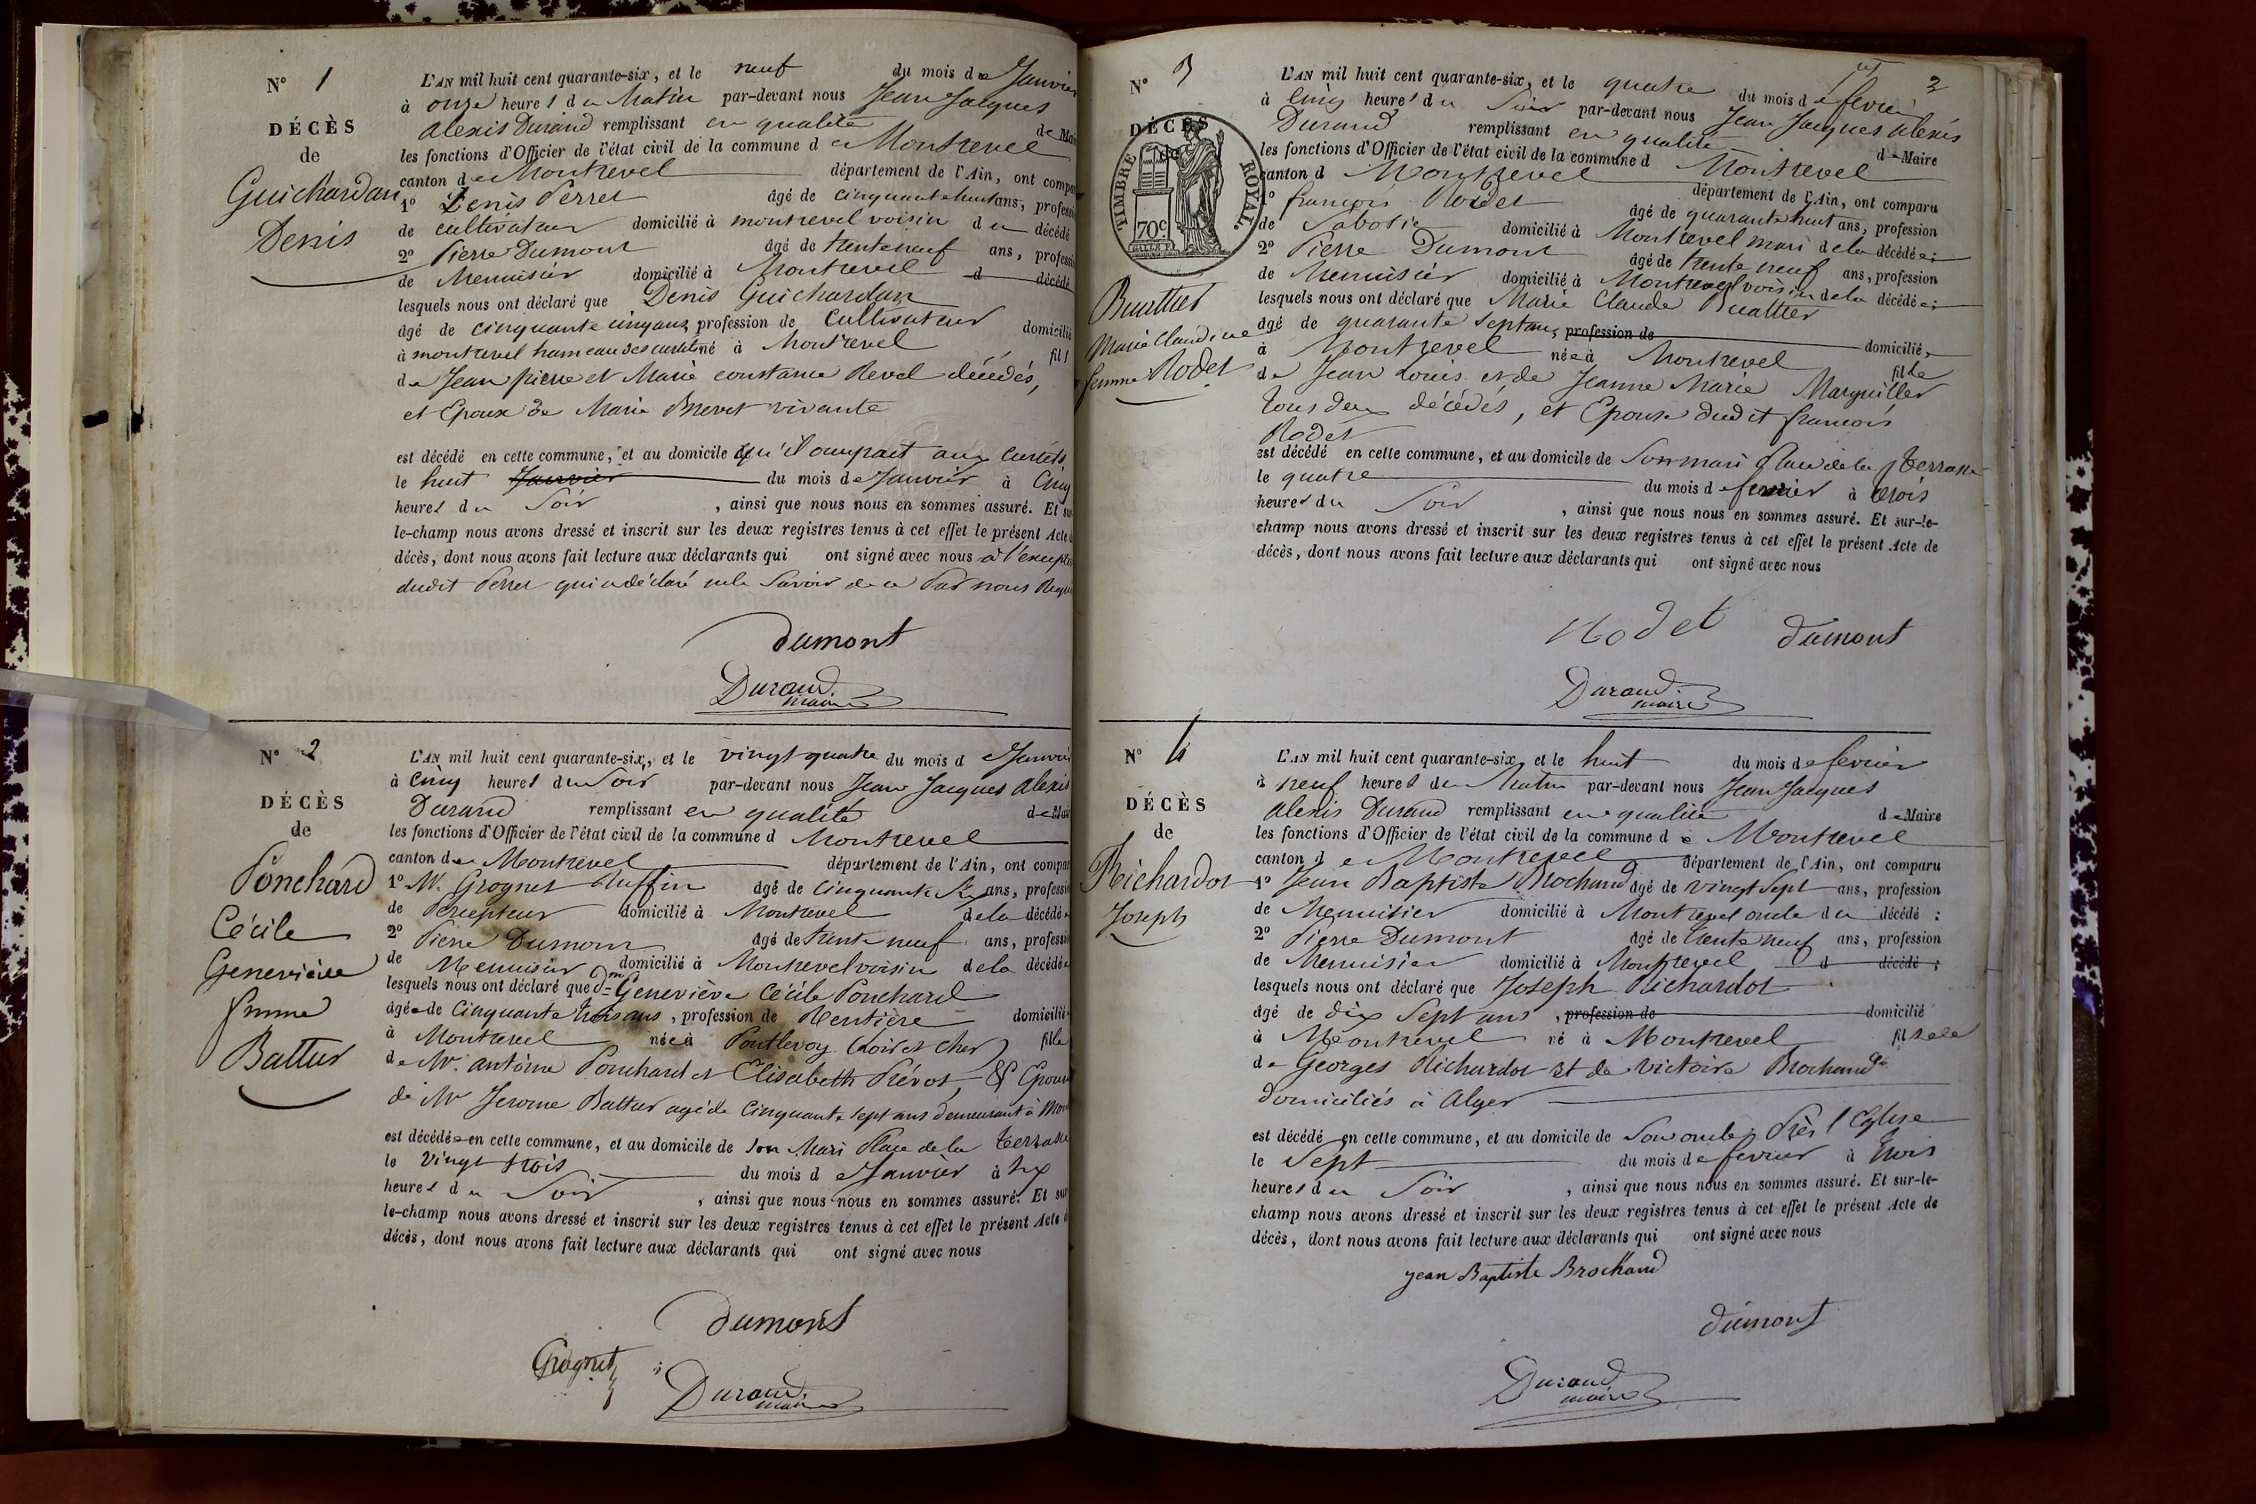 N° 1
DÉCÈS
de
Guichardan
Denis
L'AN mil huit cent quarante-six, et le neuf du mois de Janvier
à onze heures du Matin par-devant nous Jean Jacques
Alexis Durand remplissant en qualité de Mai
les fonctions d'Officier de l'état civil de la commune de Montrevel
canton de Montrevel département de l'Ain, ont compa
1° Denis Perret âgé de cinquante huit ans, professi
de cultivateur domicilié à montrevel voisin du décédé
2° Pierre Dumont âgé de trente neuf ans, professi
de Menuisier domicilié à Montrevel d décédé
lesquels nous ont déclaré que Denis Guichardan
âgé de cinquante cinq ans, profession de Cultivateur domicilié
à montrevel hameau des curtets né à Montrevel fils
de Jean pierre et Marie constance Revel décédés,
et Epoux de Marie Brevet vivante
est décédé en cette commune, et au domicile qu'il occupait aux Curtets
le huit Janvier du mois de Janvier à Cinq
heures du Soir, ainsi que nous nous en sommes assuré. Et su
le-champ nous avons dressé et inscrit sur les deux registres tenus à cet effet le présent Acte d
décès, dont nous avons fait lecture aux déclarants qui ont signé avec nous à l'excep
dudit Perret qui a déclaré ne le Savoir de ce Par nous Requ
Dumont
Durand
maire
N° 2
DÉCÈS
de
Ponchard
Cécile
Geneviève
femme
Battur
L'AN mil huit cent quarante-six, et le vingt quatre du mois de Janvier
à Cinq heures du Soir par-devant nous Jean Jacques Alexis
Durand remplissant en qualité de Mai
les fonctions d'Officier de l'état civil de la commune d Montrevel
canton de Montrevel département de l'Ain, ont compar
1° Mr. Grognet Ruffin âgé de Cinquante Six ans, professi
de Percepteur domicilié à Montrevel de la décédée
2° Pierre Dumont âgé de trente neuf ans, professi
de Menuisier domicilié à Montrevel voisin de la décédée
lesquels nous ont déclaré que dme Geneviève Cécile Ponchard
âgée de Cinquante trois ans, profession de Rentière domiciliée
à Montrevel née à Pontlevoy (Loir et Cher) fille
de Mr. antoine Ponchard et Elisabeth Prévot, & Epouse
de Mr Jerome Battur agé de Cinquante sept ans demeurant à Mon
est décédée en cette commune, et au domicile de Son Mari Place de la terrasse
le Vingt trois du mois de Janvier à Six
heures du Soir, ainsi que nous nous en sommes assuré. Et sur
le-champ nous avons dressé et inscrit sur les deux registres tenus à cet effet le présent Acte d
décès, dont nous avons fait lecture aux déclarants qui ont signé avec nous
Dumont
Grognet
Durand
maire
3
N° 3
DÉCÈS
TIMBRE ROYAL.
70c.
Buathier
Marie Claudine
femme Rodet
L'AN mil huit cent quarante-six, et le quatre du mois de fevrier
à Cinq heures du Soir par-devant nous Jean Jacques Alexis
Durand remplissant en qualité de Maire
les fonctions d'Officier de l'état civil de la commune d Montrevel
canton d Montrevel département de l'Ain, ont comparu
1° francois Rodet âgé de quarante huit ans, profession
de Sabotier domicilié à Montrevel mari de la décédée;
2° Pierre Dumont âgé de trente neuf ans, profession
de Menuisier domicilié à Montrevel voisin de la décédée;
lesquels nous ont déclaré que Marie Claude Buathier
âgé de quarante sept ans, profession de domiciliée
à Montrevel née à Montrevel fille
de Jean Louis et de Jeanne Marie Marguiller
tous deux décédés, et Epouse dudit francois
Rodet
est décédé en cette commune, et au domicile de Son mari Place de la terrasse
le quatre du mois de fevrier à trois
heures du Soir, ainsi que nous nous en sommes assuré. Et sur-le-
champ nous avons dressé et inscrit sur les deux registres tenus à cet effet le présent Acte de
décès, dont nous avons fait lecture aux déclarants qui ont signé avec nous
Rodet Dumont
Durand
maire
N° 4
DÉCÈS
de
Richardot
Joseph
L'AN mil huit cent quarante-six, et le huit du mois de fevrier
à neuf heures du Matin par-devant nous Jean Jacques
Alexis Durand remplissant en qualité de Maire
les fonctions d'Officier de l'état civil de la commune de Montrevel
canton de Montrevel département de l'Ain, ont comparu
1° Jean Baptiste Brochand âgé de vingt Sept ans, profession
de Menuisier domicilié à Montrevel oncle du décédé;
2° Pierre Dumont âgé de trente neuf ans, profession
de Menuisier domicilié à Montrevel d décédé;
lesquels nous ont déclaré que Joseph Richardot
âgé de dix Sept ans, profession de domicilié
à Montrevel né à Montrevel fils
de Georges Richardot et de Victoire Brochand
domiciliés à Alger
est décédé en cette commune, et au domicile de Son oncle, Près l'Eglise
le Sept du mois de fevrier à trois
heures du Soir, ainsi que nous nous en sommes assuré. Et sur-le-
champ nous avons dressé et inscrit sur les deux registres tenus à cet effet le présent Acte de
décès, dont nous avons fait lecture aux déclarants qui ont signé avec nous
jean Baptiste Brochand
Dumont
Durand
maire